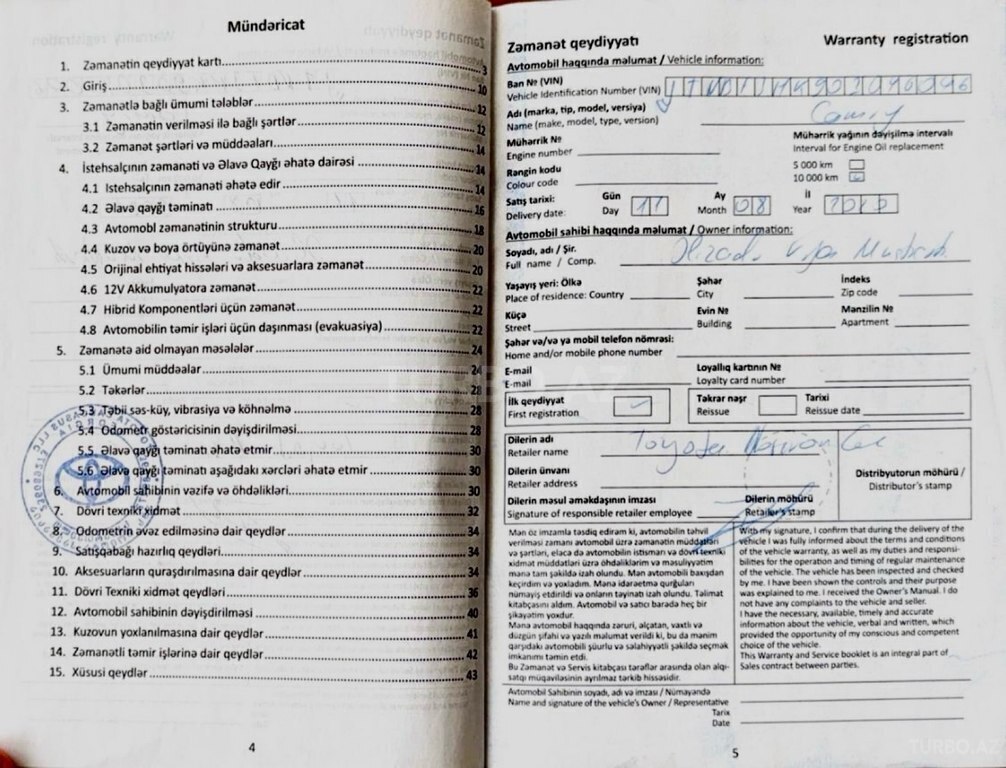 Mündəricat
1. Zəmanətin qeydiyyat kartı 3
2. Giriş 10
3. Zəmanətlə bağlı ümumi tələblər 12
3.1 Zəmanətin verilməsi ilə bağlı şərtlər 12
3.2 Zəmanət şərtləri və müddəaları 14
4. İstehsalçının zəmanəti və Əlavə Qayğı əhatə dairəsi 14
4.1 Istehsalçının zəmanəti əhatə edir 14
4.2 Əlavə qayğı təminatı 16
4.3 Avtomobl zəmanətinin strukturu 18
4.4 Kuzov və boya örtüyünə zəmanət 20
4.5 Orijinal ehtiyat hissələri və aksesuarlara zəmanət 20
4.6 12V Akkumulyatora zəmanət 22
4.7 Hibrid Komponentləri üçün zəmanət 22
4.8 Avtomobilin təmir işləri üçün daşınması (evakuasiya) 22
5. Zəmanətə aid olmayan məsələlər 24
5.1 Ümumi müddəalar 24
5.2 Təkərlər 28
5.3 Təbii səs-küy, vibrasiya və köhnəlmə 28
5.4 Odometr göstəricisinin dəyişdirilməsi 28
5.5 Əlavə qayğı təminatı əhatə etmir 30
5.6 Əlavə qayğı təminatı aşağıdakı xərcləri əhatə etmir 30
6. Avtomobil sahibinin vəzifə və öhdəlikləri 30
7. Dövri texniki xidmət 32
8. Odometrin əvəz edilməsinə dair qeydlər 34
9. Satışqabağı hazırlıq qeydləri 34
10. Aksesuarların quraşdırılmasına dair qeydlər 34
11. Dövri Texniki xidmət qeydləri 36
12. Avtomobil sahibinin dəyişdirilməsi 40
13. Kuzovun yoxlanılmasına dair qeydlər 41
14. Zəmanətli təmir işlərinə dair qeydlər 42
15. Xüsusi qeydlər 43
4
Zəmanət qeydiyyatı Warranty registration
Avtomobil haqqında məlumat / Vehicle information:
Ban № (VIN)
Vehicle Identification Number (VIN)
Adı (marka, tip, model, versiya)
Name (make, model, type, version) Camry
Mühərrik №
Engine number
Mühərrik yağının dəyişilmə intervalı
Interval for Engine Oil replacement
5 000 km
10 000 km
Rəngin kodu
Colour code
Satış tarixi: Gün Ay İl
Delivery date: Day 11 Month 08 Year
Avtomobil sahibi haqqında məlumat / Owner information:
Soyadı, adı / Şir.
Full name / Comp.
Yaşayış yeri: Ölkə Şəhər İndeks
Place of residence: Country City Zip code
Küçə Evin № Mənzilin №
Street Building Apartment
Şəhər və/və ya mobil telefon nömrəsi:
Home and/or mobile phone number
E-mail Loyallıq kartının №
E-mail Loyalty card number
İlk qeydiyyat Təkrar nəşr Tarixi
First registration Reissue Reissue date
Dilerin adı
Retailer name Toyota
Dilerin ünvanı
Retailer address
Dilerin məsul əməkdaşının imzası
Signature of responsible retailer employee
Dilerin möhürü
Retailer's stamp
Distribyutorun möhürü /
Distributor's stamp
Mən öz imzamla təsdiq edirəm ki, avtomobilin təhvil
verilməsi zamanı avtomobil üzrə zəmanətin müddətləri
və şərtləri, eləcə də avtomobilin istismarı və dövri texniki
xidmət müddətləri üzrə öhdəliklərim və məsuliyyətim
mənə tam şəkildə izah olundu. Mən avtomobilə baxışdan
keçirdim və yoxladım. Mənə idarəetmə qurğuları
nümayiş etdirildi və onların təyinatı izah olundu. Təlimat
kitabçasını aldım. Avtomobil və satıcı barədə heç bir
şikayətim yoxdur.
Mənə avtomobil haqqında zəruri, əlçatan, vaxtlı və
düzgün şifahi və yazılı məlumat verildi ki, bu da mənim
qarşıdakı avtomobili şüurlu və səlahiyyətli şəkildə seçmək
imkanımı təmin etdi.
Bu Zəmanət və Servis kitabçası tərəflər arasında olan alqı-
satqı müqaviləsinin ayrılmaz tərkib hissəsidir.
With my signature, I confirm that during the delivery of the
vehicle I was fully informed about the terms and conditions
of the vehicle warranty, as well as my duties and responsi-
bilities for the operation and timing of regular maintenance
of the vehicle. The vehicle has been inspected and checked
by me. I have been shown the controls and their purpose
was explained to me. I received the Owner's Manual. I do
not have any complaints to the vehicle and seller.
I have the necessary, available, timely and accurate
information about the vehicle, verbal and written, which
provided the opportunity of my conscious and competent
choice of the vehicle.
This Warranty and Service booklet is an integral part of
Sales contract between parties.
Avtomobil Sahibinin soyadı, adı və imzası / Nümayəndə
Name and signature of the vehicle's Owner / Representative
Tarix
Date
5
TURBO.AZ
TURBO.AZ